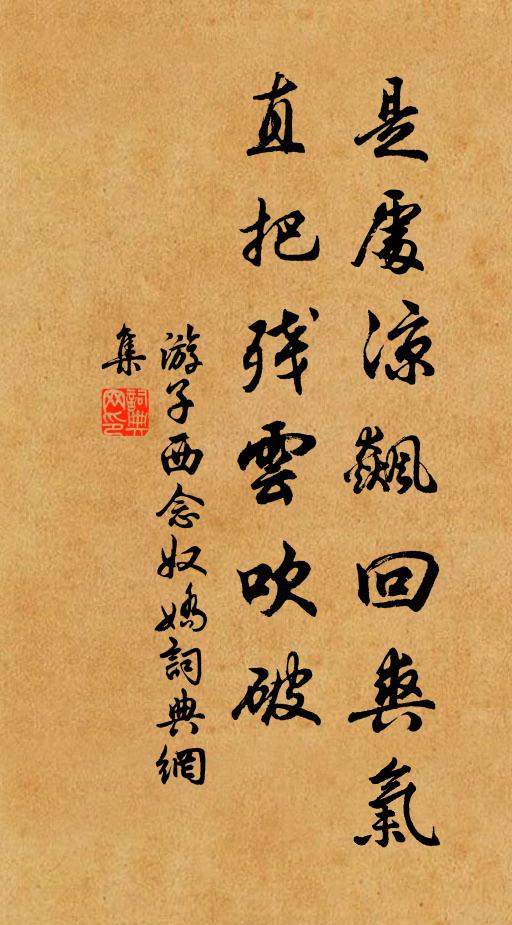 是處涼飆回爽氣
直把殘雲吹破
游子西念奴嬌詞典網
集
詞典
网印